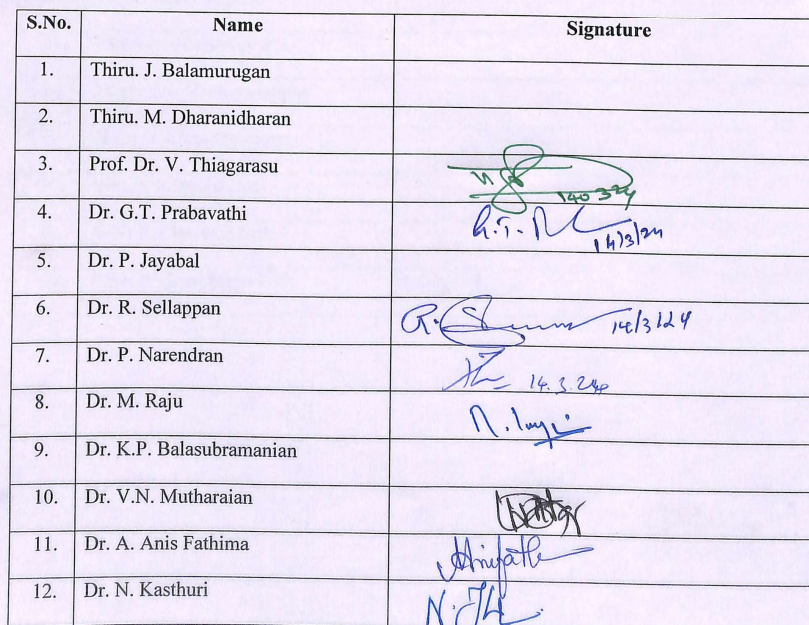 S.No. Name Signature
1. Thiru. J. Balamurugan
2. Thiru. M. Dharanidharan
3. Prof. Dr. V. Thiagarasu
4. Dr. G.T. Prabavathi G.T. 14/3/24
5. Dr. P. Jayabal
6. Dr. R. Sellappan R. 14/3/24
7. Dr. P. Narendran 14.3.24
8. Dr. M. Raju
9. Dr. K.P. Balasubramanian
10. Dr. V.N. Mutharaian
11. Dr. A. Anis Fathima
12. Dr. N. Kasthuri N.